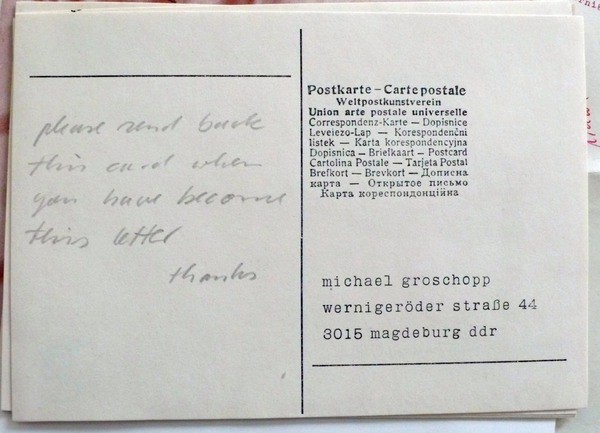 please send back
this card when
you have become
this letter
thanks
Postkarte – Carte postale
Weltpostkunstverein
Union arte postale universelle
Correspondenz-Karte — Dopisnice
Levelezo-Lap — Korespondenční
listek — Karta korespondencyjna
Dopisnica — Briefkaart — Postcard
Cartolina Postale — Tarjeta Postal
Brefkort — Brevkort — Дописна
карта — Открытое письмо
Карта кореспонденційна
michael groschopp
wernigeröder straße 44
3015 magdeburg ddr